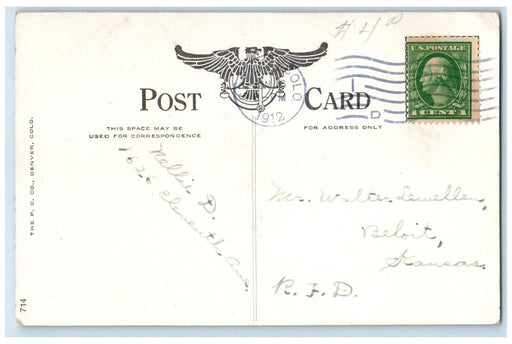 # 4 00
U.S. POSTAGE
1 CENT 1
COLO.
1912
D
POST CARD
THIS SPACE MAY BE
USED FOR CORRESPONDENCE
FOR ADDRESS ONLY
Nellie D.
1626 Eleventh Ave.
Mr. Walter Lewellen,
Beloit,
Kansas.
R.F.D.
THE P. C. CO., DENVER, COLO.
714